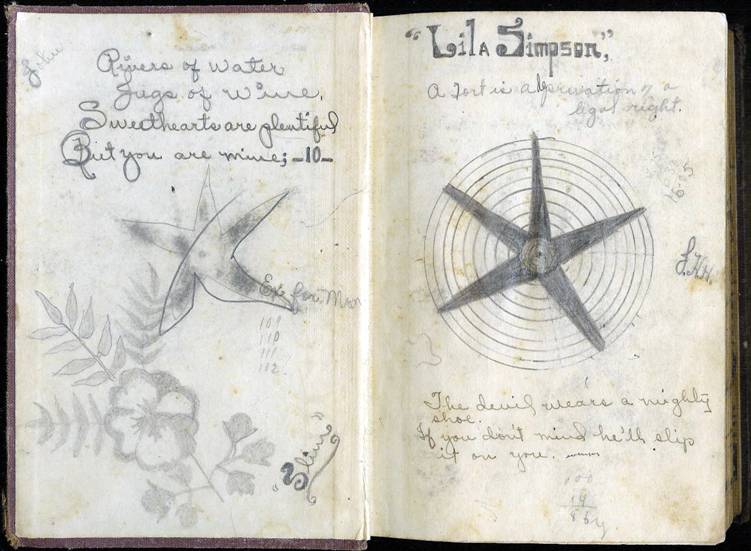 John
Rivers of water
Jugs of wine,
Sweethearts are plentiful
But you are mine; -10-
Ex for Mon
109
110
111
112
"Slim"
"Lila Simpson,"
A Tort is a deprivation of a
legal right.
The devil wears a mighty
shoe.
If you don't mind he'll slip
it on you.
100
19